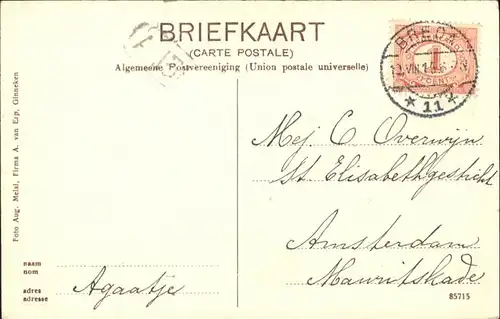 BRIEFKAART
(CARTE POSTALE)
Algemeene Postvereeniging (Union postale universelle)
BREDA
1
CENT
★ 11
Mej C Overwijn
St. Elisabethgesticht
Amsterdam
Mauritskade
Foto Aug. Melsl, Firma A. van Erp, Ginneken
naam
nom
adres
adresse
Agaatje
85715